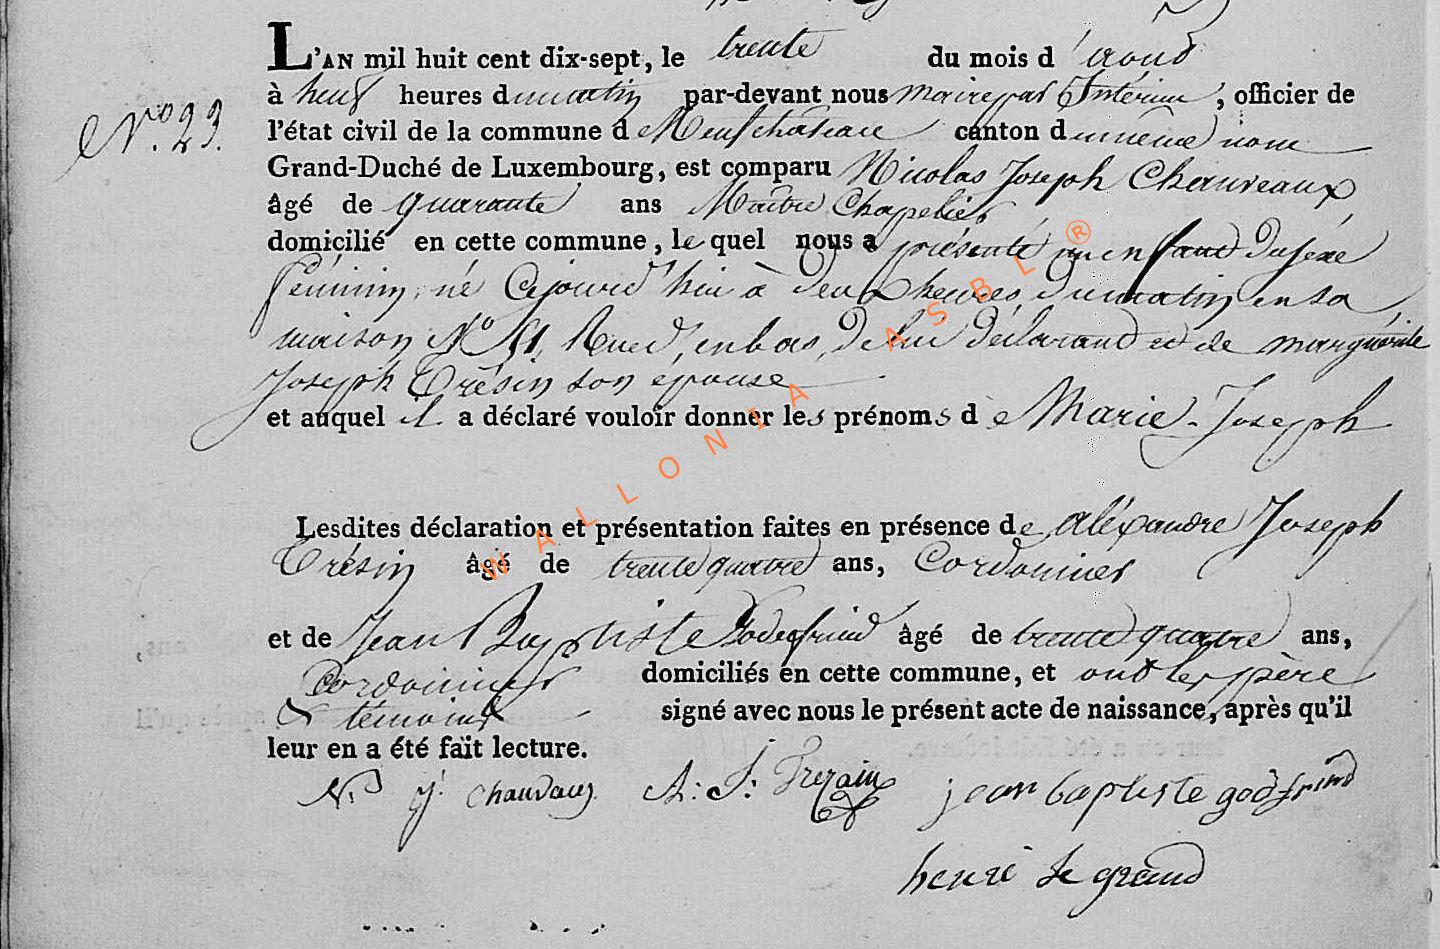 L'AN mil huit cent dix-sept, le trente du mois d'août
à neuf heures du matin par-devant nous maire par Intérim, officier de
N.º 23.
l'état civil de la commune de Neufchateau canton du même nom
Grand-Duché de Luxembourg, est comparu Nicolas Joseph Chauveaux
âgé de quarante ans Maître Chapelier
domicilié en cette commune, le quel nous a présenté un enfant du sexe
féminin, né Cejourd'hui à deux heures du matin en sa
maison Nº 51, Rue d'en bas, de lui déclarant et de marguerite
Joseph Trésin son épouse
et auquel il a déclaré vouloir donner les prénoms de Marie-Joseph
Lesdites déclaration et présentation faites en présence de aléxandre Joseph
Trésin âgé de trente quatre ans, Cordonnier
et de Jean Baptiste Godefrind âgé de trente quatre ans,
Cordonnier domiciliés en cette commune, et ont les père
& témoins signé avec nous le présent acte de naissance, après qu'il
leur en a été fait lecture.
N. J. Chauvaux A: J: Trezain jean baptiste godfrind
henri Le grand
WALLONIA ASBL ®